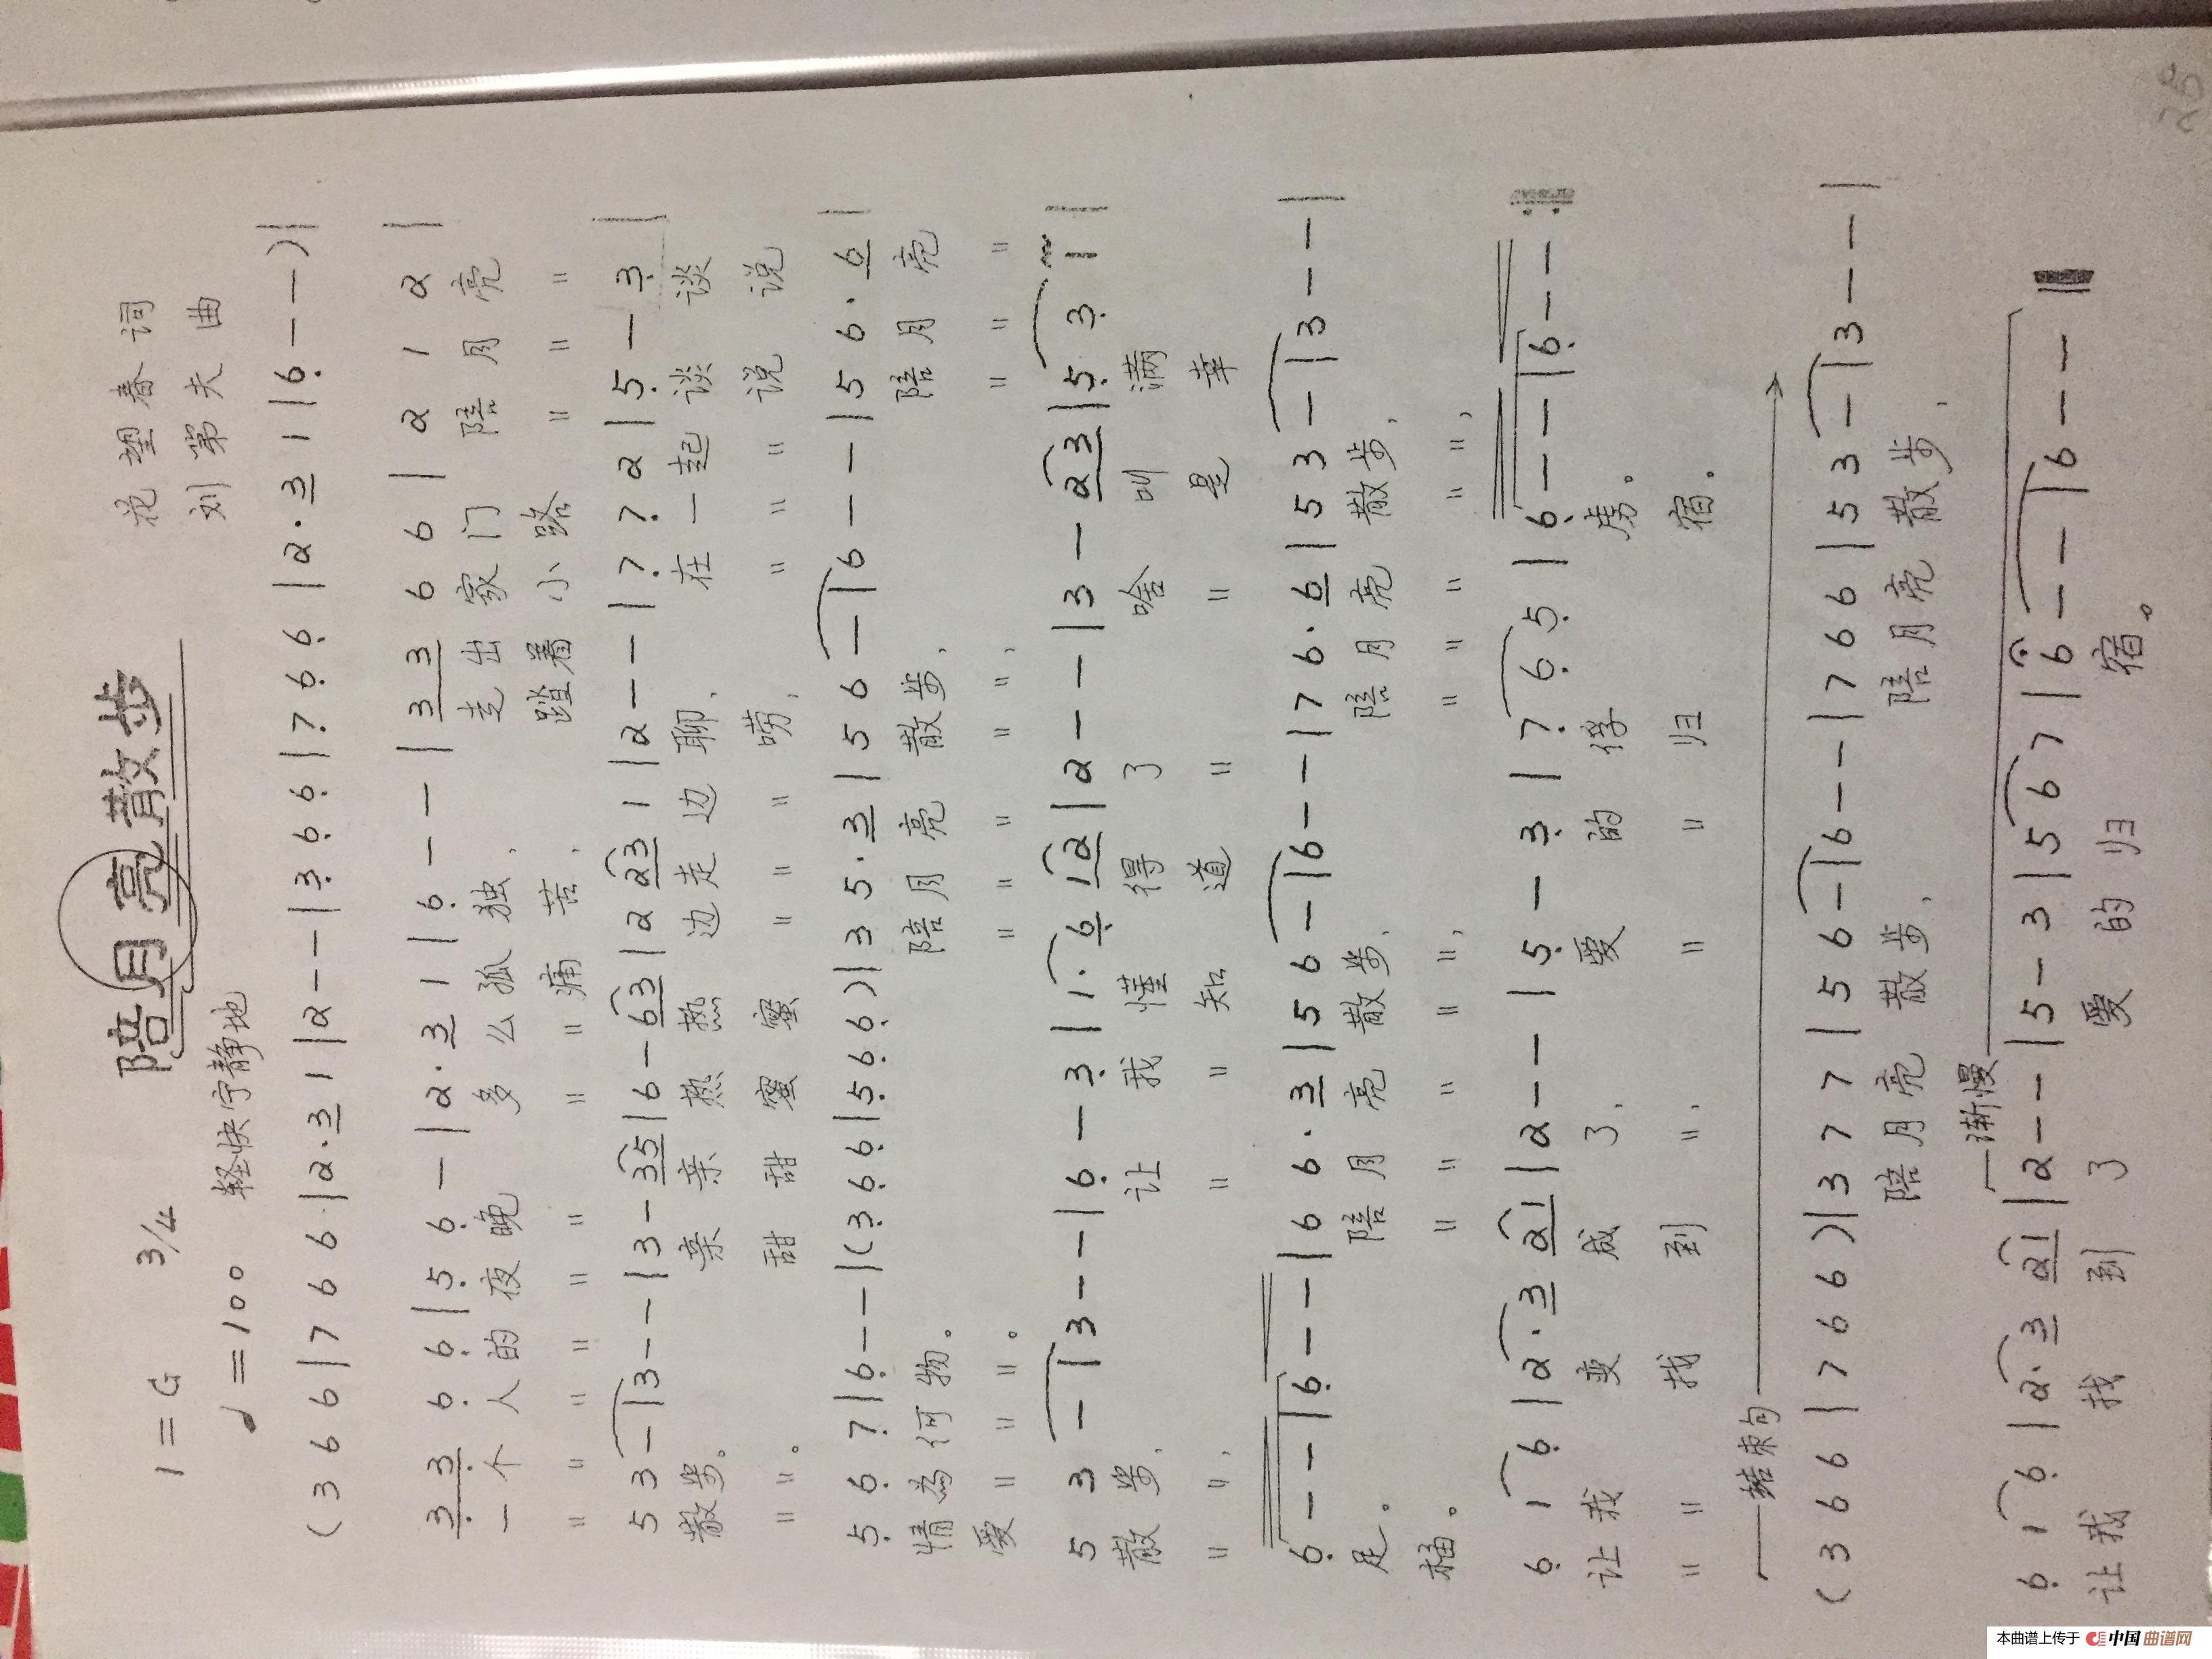 陪月亮散步
1=G 3/4
花塑春 词
♩=100 轻快宁静地
刘第夫 曲
(3 6 6 | 7 6 6 | 2· 3 1 | 2 - - | 3̣ 6̣ 6̣ | 7̣ 6̣ 6̣ | 2· 3 1 | 6̣ - - ) |
3̣ 3̣ 6̣ 6̣ | 5̣ 6̣ - | 2· 3 1 | 6̣ - - | 3 3 6 6 | 2 1 2 |
一个人的夜晚 多么孤独, 走出家门 陪月亮
" " " " " " " " 痛苦, 踏着小路 " " "
5 3 - | 3 - - | 3 - 3 5 | 6 - 6 3 | 2 2 3 1 | 2 - - | 7̣ 7̣ 2 | 5̣ - 3̣ |
散步。 亲亲热热 边走边聊, 在一起谈谈
" "。 甜甜蜜蜜 " " " 唠, " " " 说说
5̣ 6̣ 7̣ | 6̣ - - | (3̣ 6̣ 6̣ | 5̣ 6̣ 6̣ ) | 3 5· 3 | 5 6 - | 6 - - | 5 6· 6 |
情為何物。 陪月亮散步, 陪月亮
爱 " " "。 " " " " ", " "
5 3 - | 3 - - | 6̣ - 3̣ | 1· 6̣ 1 2 | 2 - - | 3 - 2 3 | 5̣ 3̣ 1 |
散步, 让我懂得了 啥叫满
" ", " " 知道 " " 是幸
6̣ - - | 6̣ - - | 6 6· 3 | 5 6 - | 6 - - | 7 6· 6 | 5 3 - | 3 - - |
足。 陪月亮散步, 陪月亮散步,
福。 " " " " ", " " " " ",
6̣ 1 6̣ | 2· 3 2 1 | 2 - - | 5̣ - 3̣ | 7̣ 6̣ 5̣ | 6̣ - - | 6̣ - - :‖
让我变成了, 爱的俘虏。
" " 找到 ", " " 归宿。
结束句
(3 6 6 | 7 6 6 ) | 3 7 7 | 5 6 - | 6 - - | 7 6 6 | 5 3 - | 3 - - |
陪月亮散步, 陪月亮散步,
渐慢
6̣ 1 6̣ | 2· 3 2 1 | 2 - - | 5 - 3 | 5 6 7 | 6 - - | 6 - - ‖
让我找到了 爱的归宿。
本曲谱上传于 中国曲谱网